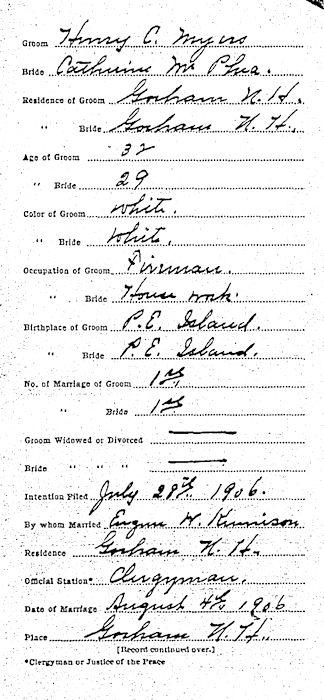 Groom Henry C. Myers
Bride Catherine Mc Phea.
Residence of Groom Gorham N. H.
" Bride Gorham N. H.
Age of Groom 32
" Bride 29
Color of Groom White.
" Bride White.
Occupation of Groom Fireman.
" Bride House work.
Birthplace of Groom P. E. Island.
" Bride P. E. Island.
No. of Marriage of Groom 1st
" Bride 1st
Groom Widowed or Divorced —
Bride " " " —
Intention Filed July 28th 1906.
By whom Married Eugene W. Kennison
Residence Gorham N. H.
Official Station* Clergyman.
Date of Marriage August 4th 1906
Place Gorham N. H.
[Record continued over.]
*Clergyman or Justice of the Peace